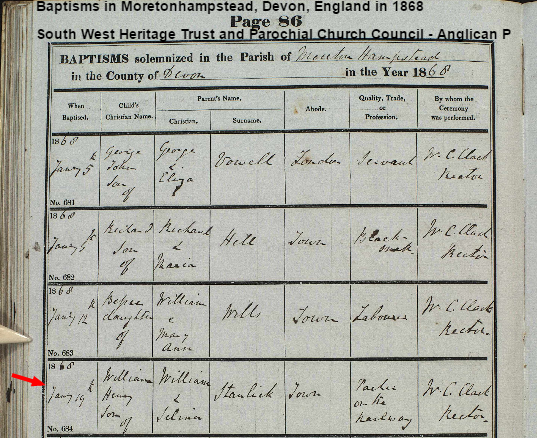 Baptisms in Moretonhampstead, Devon, England in 1868
Page 86
South West Heritage Trust and Parochial Church Council - Anglican P
BAPTISMS solemnized in the Parish of Moreton Hampstead
in the County of Devon in the Year 1868
When Baptized. Child's Christian Name. Parent's Name. Christian. Surname. Abode. Quality, Trade, or Profession. By whom the Ceremony was performed.
1868
Jany 5th
No. 681
George John Son of
George & Eliza
Vowell
London
Servant
W. C. Clack
Rector
1868
Jany
No. 682
Richard Son of
Richard & Maria
Hill
Town
Blacksmith
W. C. Clack
Rector
1868
Jany 12th
No. 683
Bessie daughter of
William & Mary Ann
Wills
Town
Labourer
W. C. Clack
Rector
1868
Jany 19th
No. 684
William Henry Son of
William & Selina
Town
on the Railway
W. C. Clack
Rector